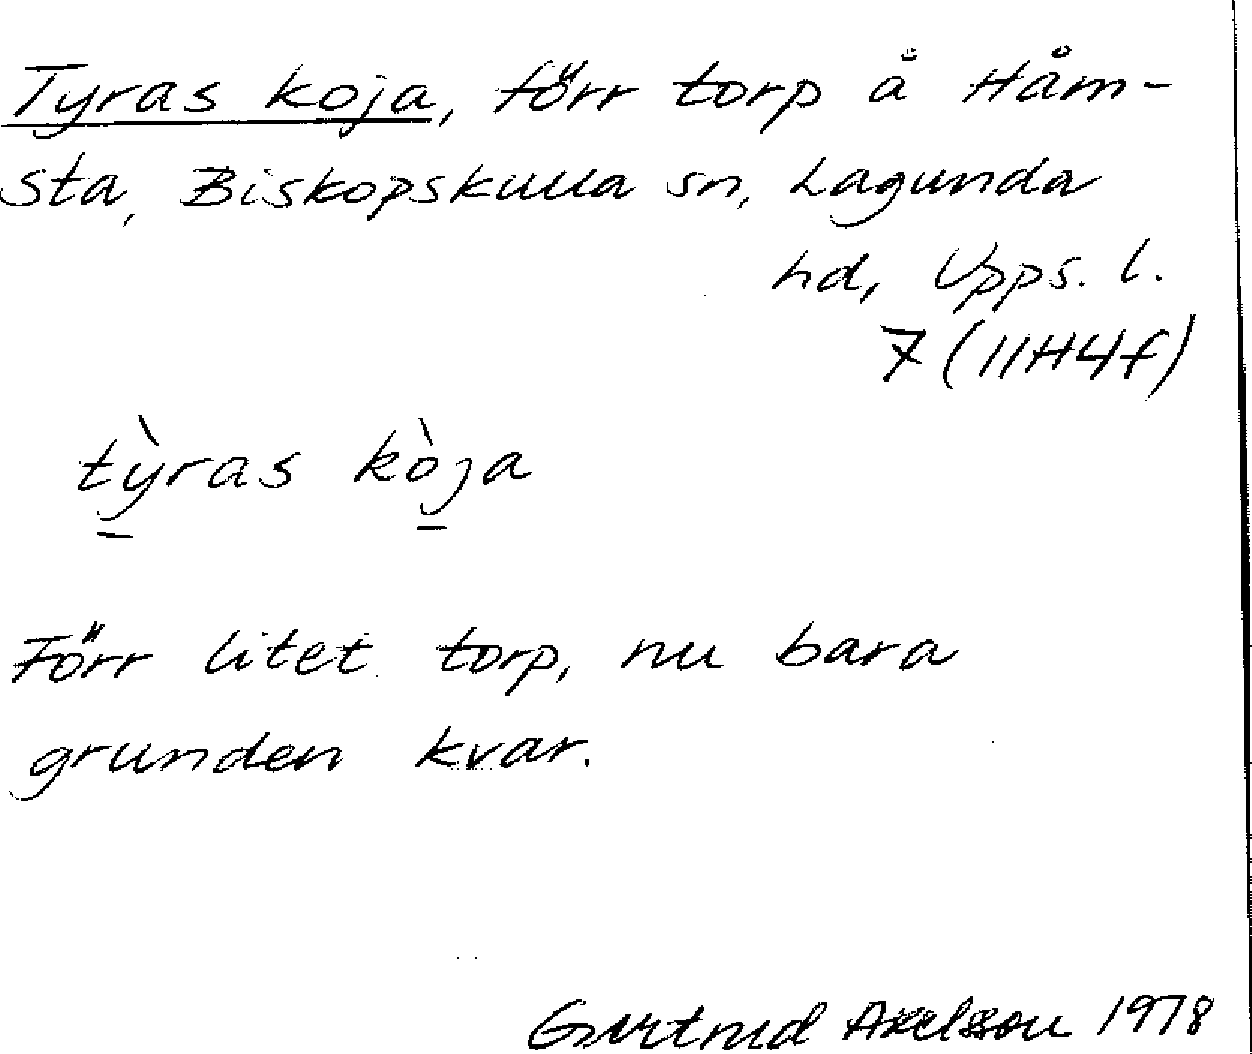 Tyras koja, förr torp å Håm-
sta, Biskopskulla sn, Lagunda
hd, Upps. l.
7 (11H4f)
tỳras kòja
Förr litet torp, nu bara
grunden kvar.
Gertrud Axelsson 1978